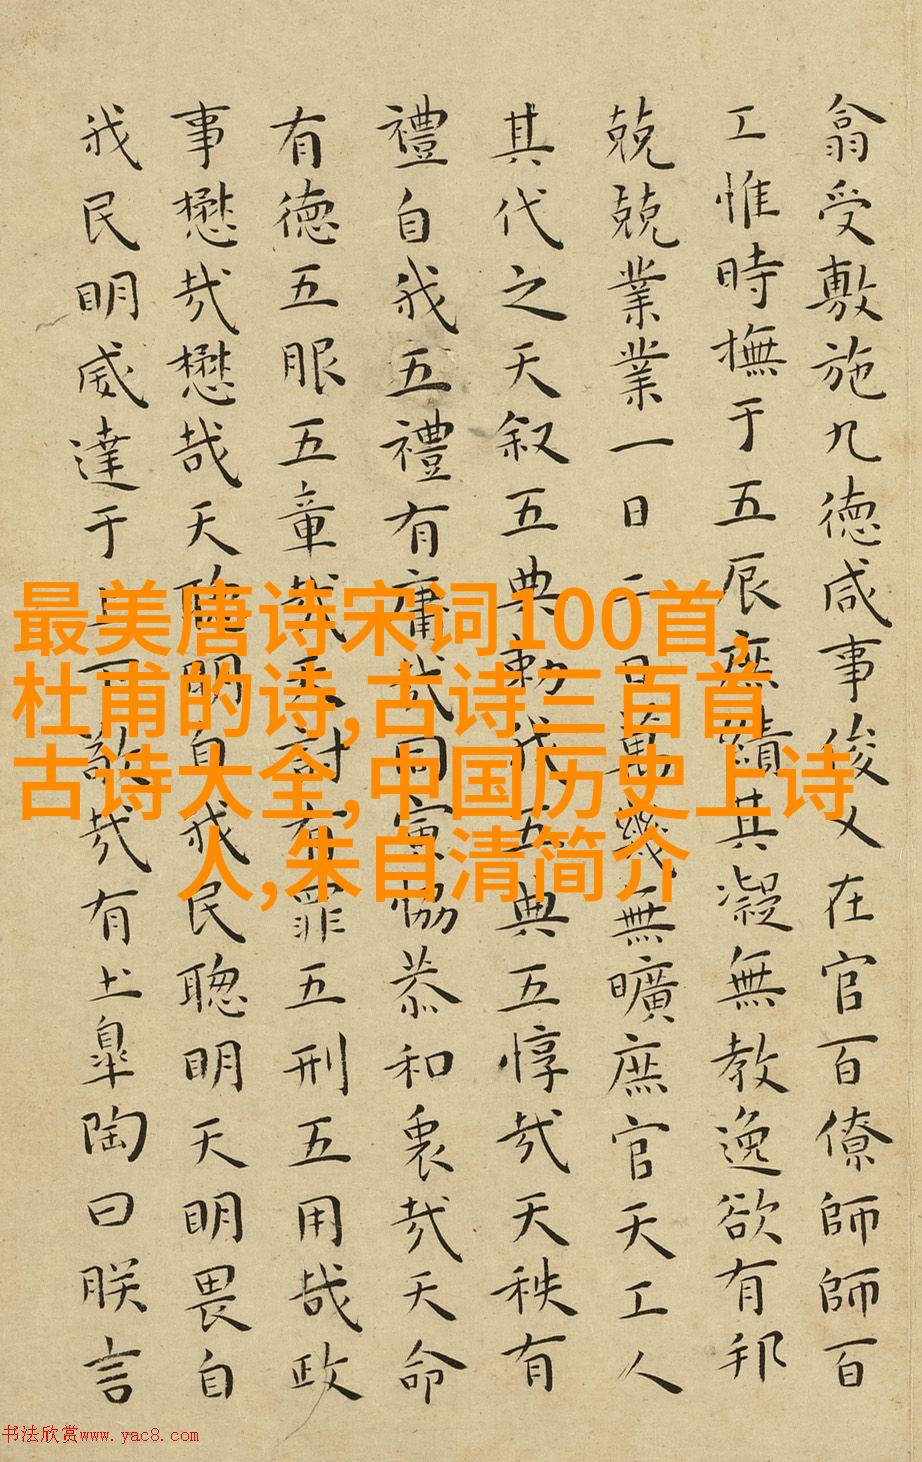 翕受敷施九德咸事俊乂在官百僚師師百
工惟時撫于五辰庶績其凝無教逸欲有邦
兢兢業業一日二日萬幾無曠庶官天工人
其代之天叙五典勑我五典五惇哉天秩有
禮自我五禮有庸哉同寅協恭和衷哉天命
有德五服五章哉天討有罪五刑五用哉政
事懋哉懋哉天聦明自我民聦明天明畏自
我民明威達于上下敬哉有土皐陶曰朕言
最美唐诗宋词100首,
杜甫的诗,古诗三百首
古诗大全,中国历史上诗
人,朱自清简介
书法欣赏www.yac8.com